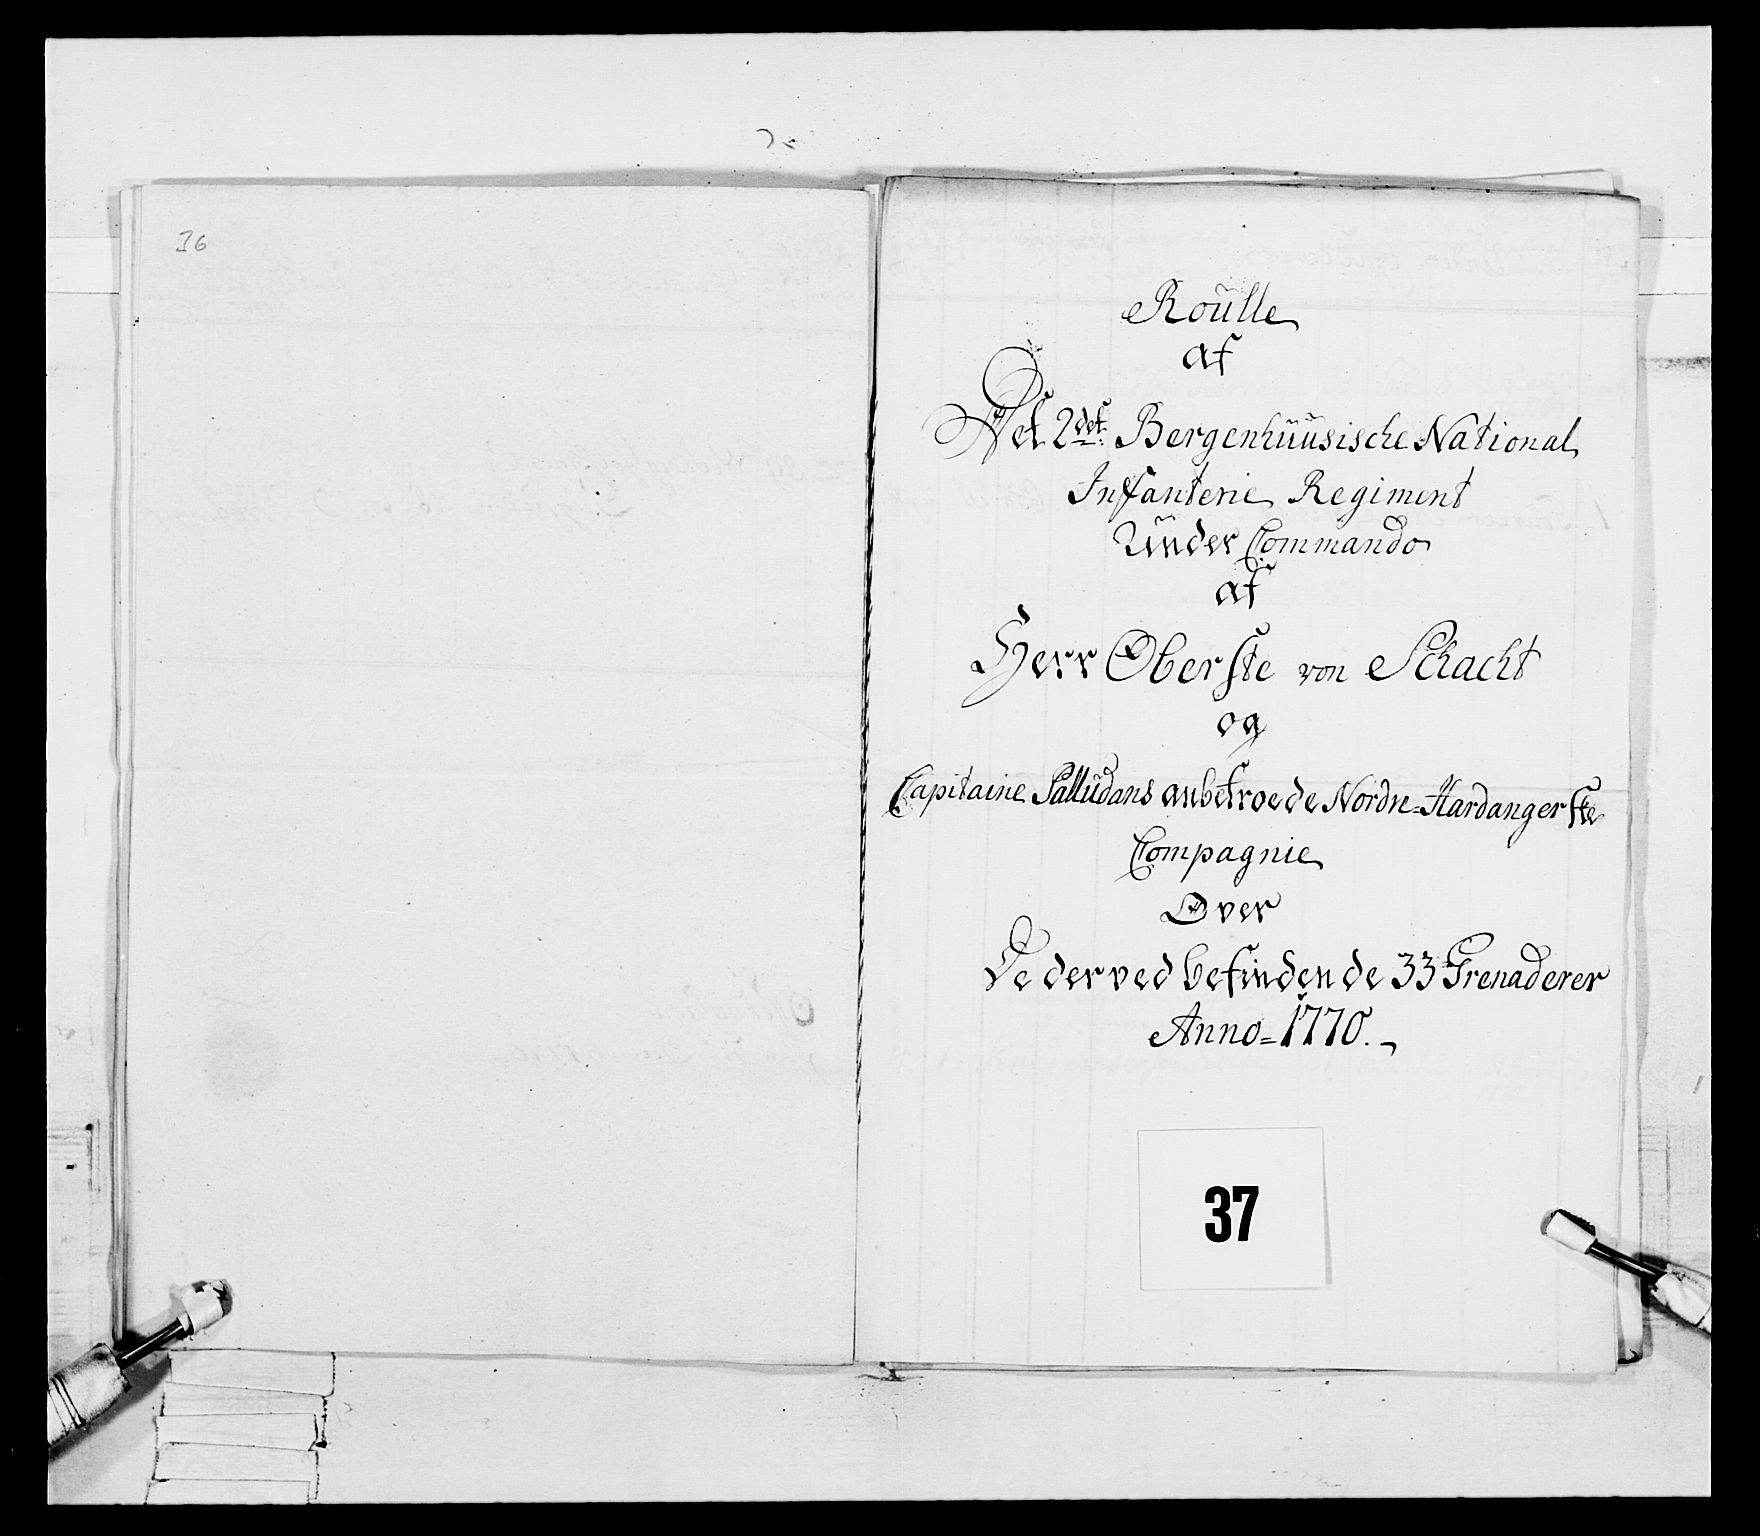 36
Roulle
af
Det 2det Bergenhuusische National
Infanterie Regiment
Under Commando
af
Herr Oberste von Schacht
og
Capitaine Palludans anbetroede Nordre=Hardangerske
Compagnie
Over
De derved befindende 33 Grenaderer
Anno=1770.
37